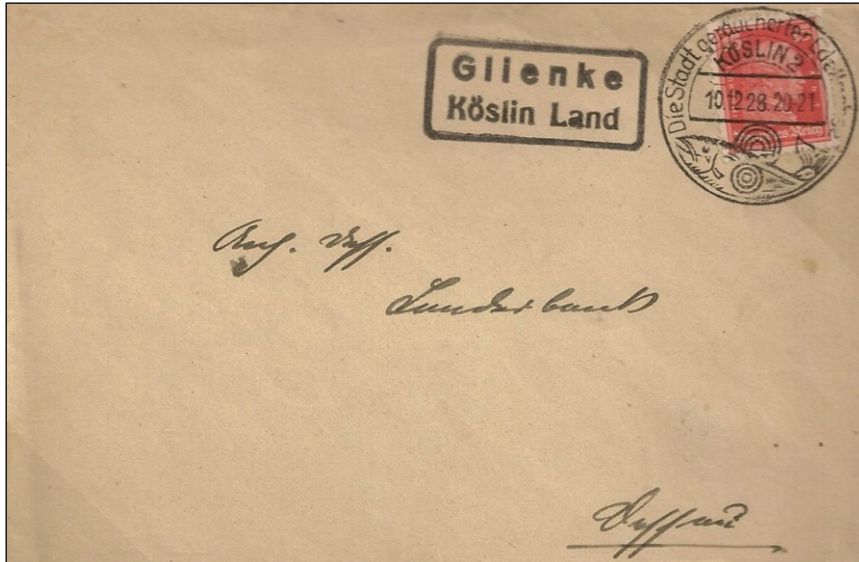 Glienke
Köslin Land
Die Stadt geräucherter
KÖSLIN 2
10.12.28.20-21
Reich
Anh. Dess.
Landesbank
Dessau